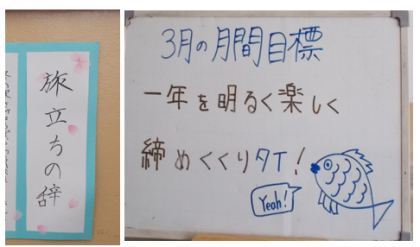 旅立ちの辞
3月の月間目標
一年を明るく楽しく
締めくくりタイ!
Yeah!